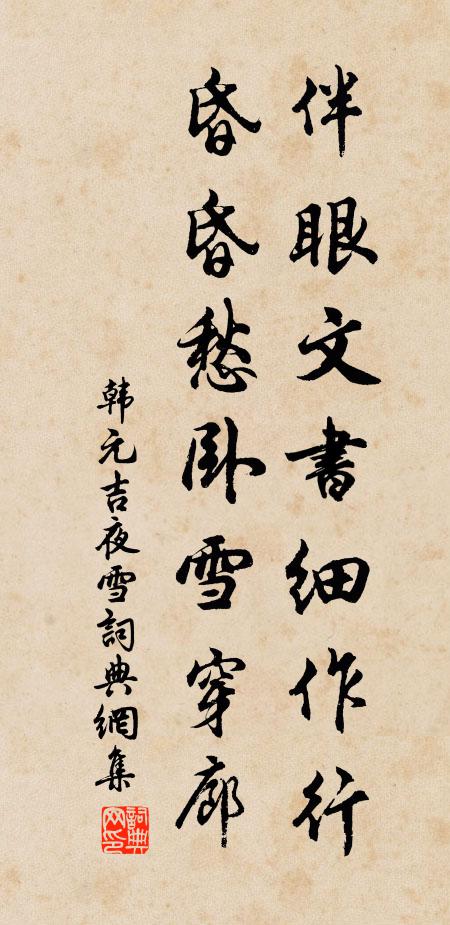 伴眼文書細作行
昏昏愁卧雪穿廊
韩元吉夜雪詞典網集
詞典网印